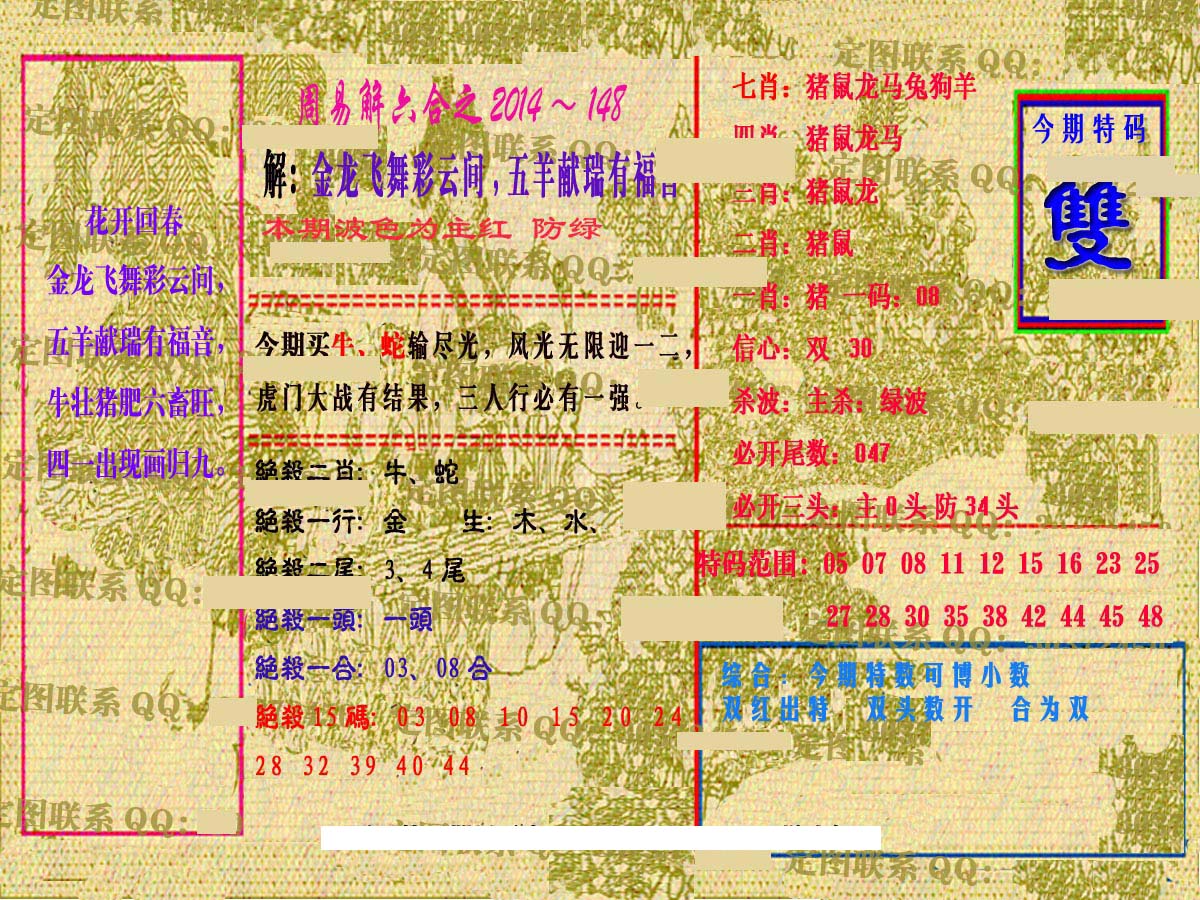 花开回春
金龙飞舞彩云间，
五羊献瑞有福音，
牛壮猪肥六畜旺，
四一出现画归九。
周易解六合之2014～148
解：金龙飞舞彩云间，五羊献瑞有福音
本期波色为主红 防绿
今期买牛、蛇输尽光，风光无限迎一二，
虎门大战有结果，三人行必有一强。
絕殺二肖：牛、蛇
絕殺一行：金 生：木、水、
絕殺二尾：3、4尾
絕殺一頭：一頭
絕殺一合：03、08合
絕殺15碼：03 08 10 15 20 24
28 32 39 40 44
七肖：猪鼠龙马兔狗羊
四肖：猪鼠龙马
三肖：猪鼠龙
二肖：猪鼠
一肖：猪 一码：08
信心：双 30
杀波：主杀：绿波
必开尾数：047
必开三头：主0头防34头
今期特码
雙
特码范围：05 07 08 11 12 15 16 23 25
27 28 30 35 38 42 44 45 48
综合：今期特数可博小数
双红出特 双头数开 合为双
定图联系QQ：